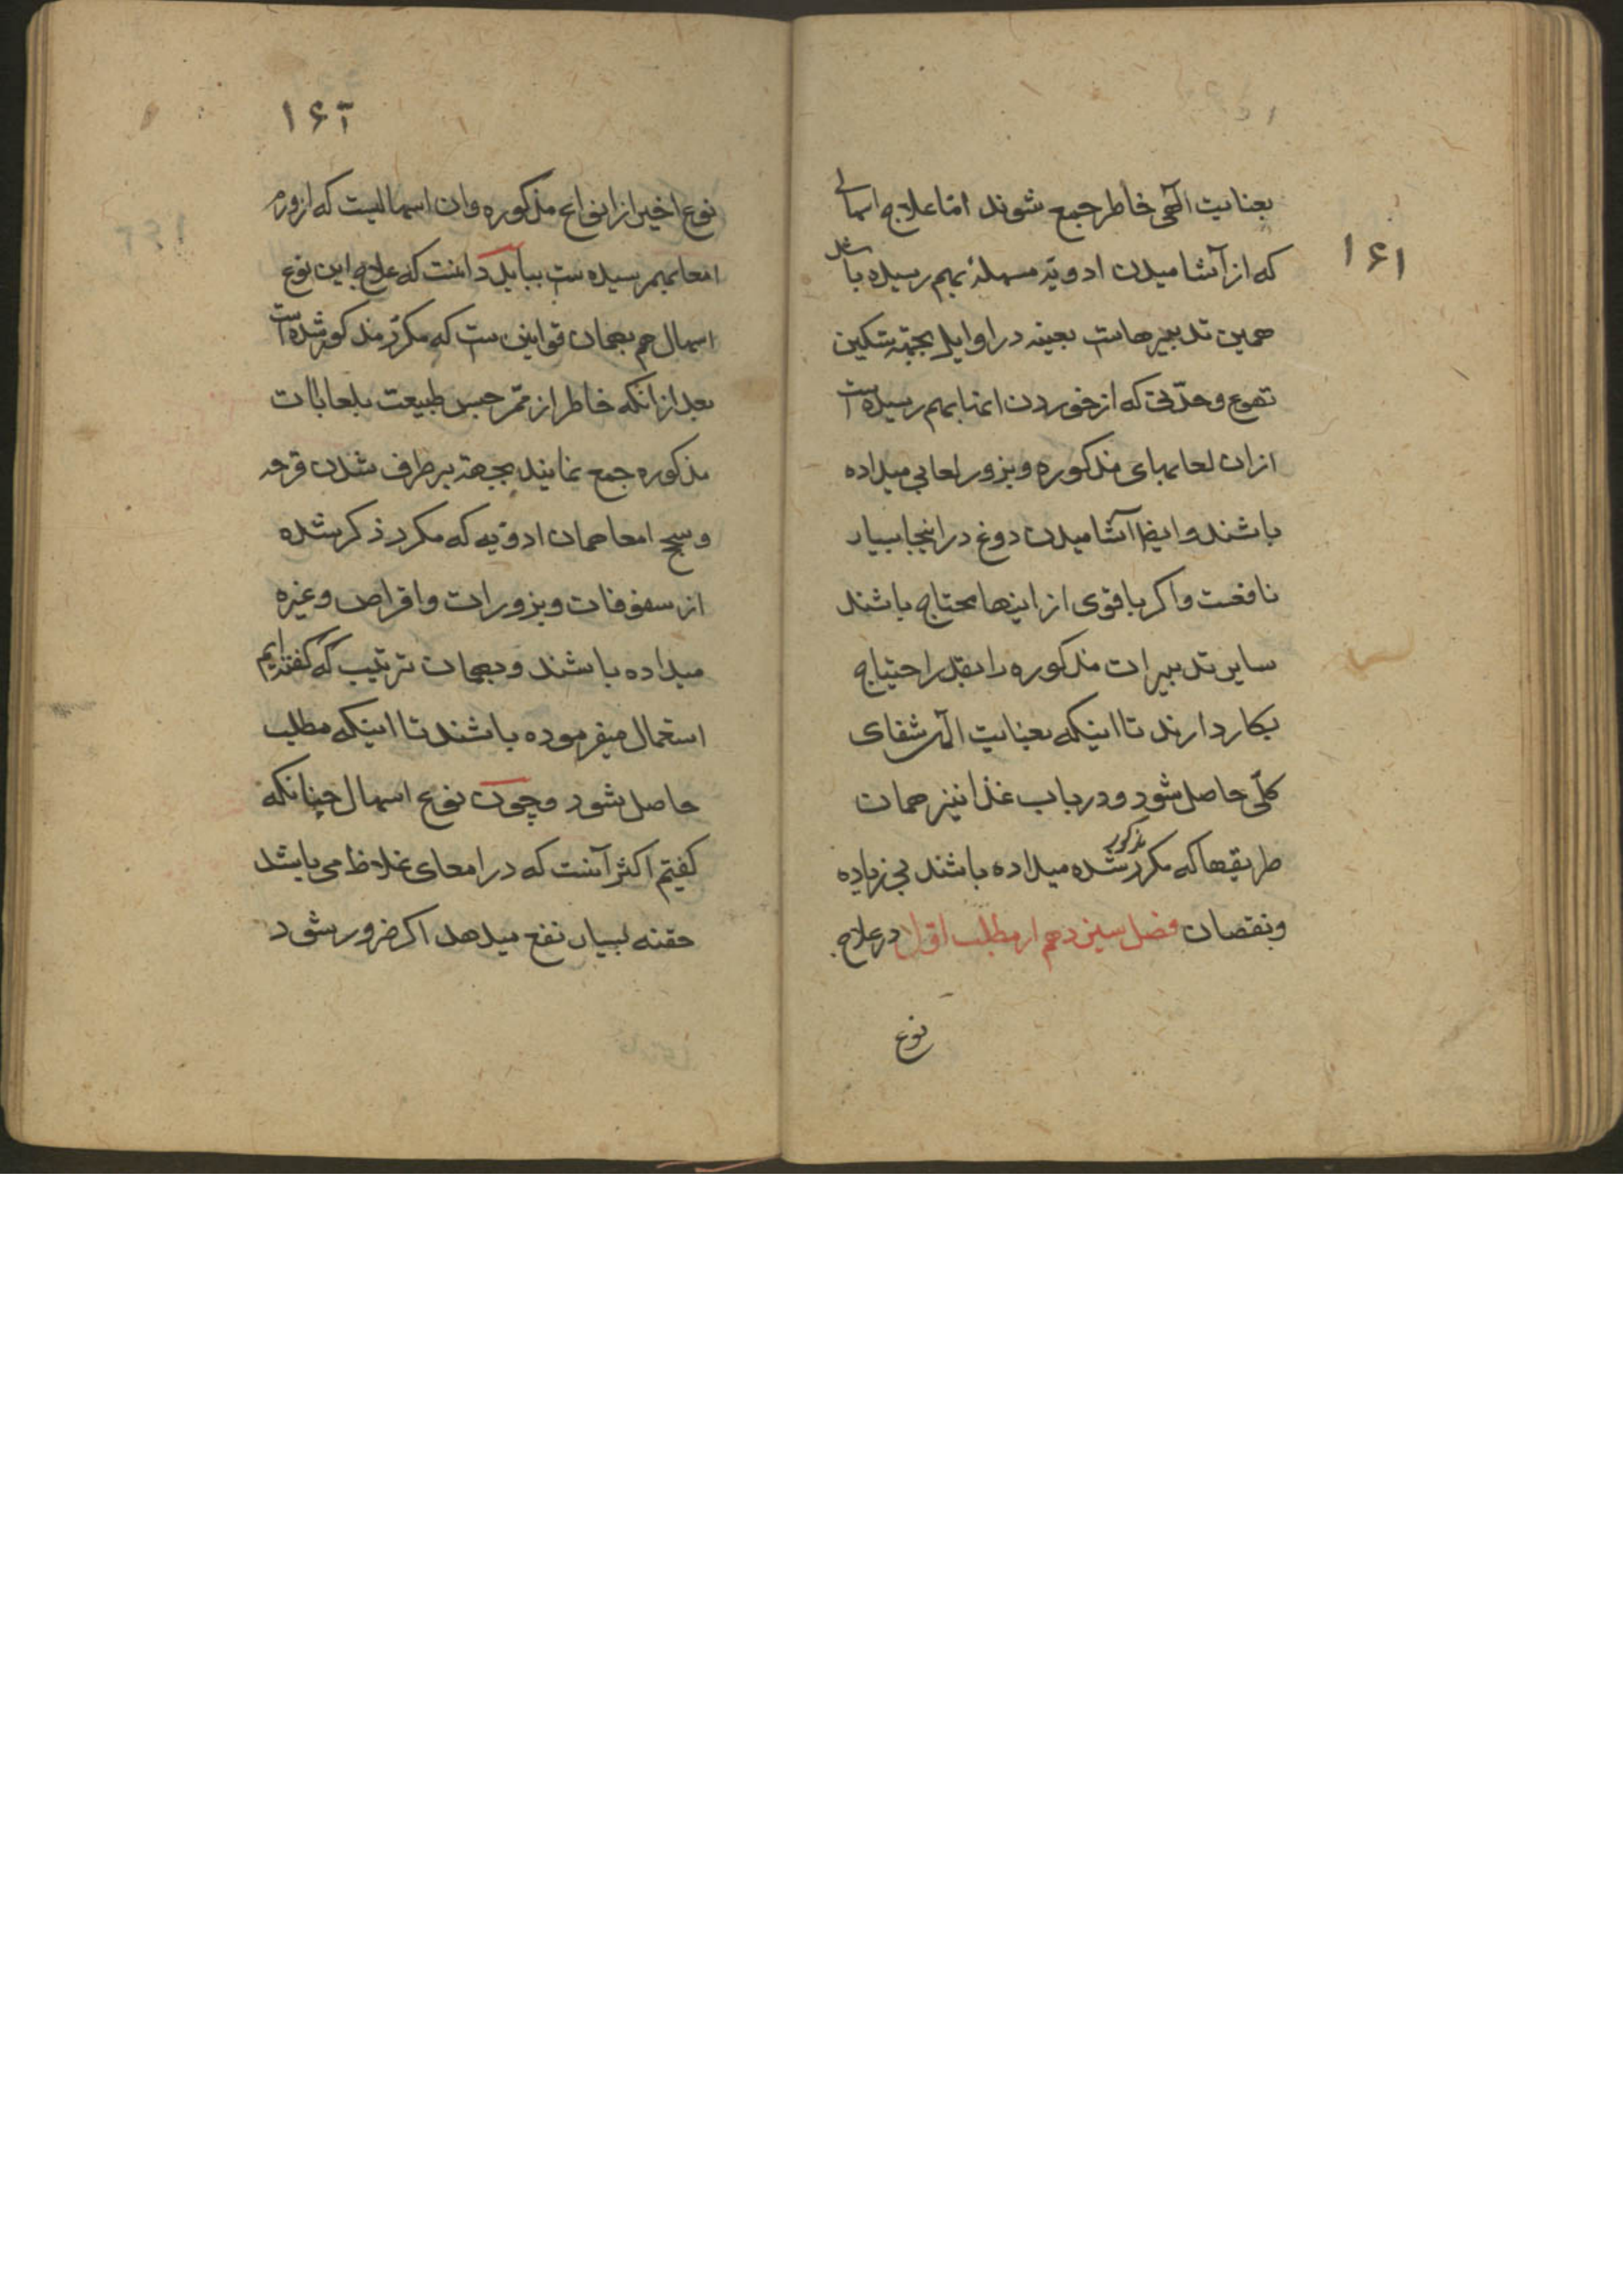 ۱۶۱
بعنایت الهی خاطر جمع شوند اما علاج اسهالی
که از آشامیدن ادویهٔ مسهله بهم رسیده باشد
همین تدبیرهاست بعینه در اوایل بجهة تسکین
تهوع وحدّتی که از خوردن اینها بهم رسیده است
ازان لعابهای مذکوره وبزور لعابی میداده
باشند وایضا آشامیدن دوغ در اینجا بسیار
نافعست واکر باقوی از اینها محتاج باشند
سایر تدبیرات مذکوره را بقدر احتیاج
بکار دارند تا اینکه بعنایت الهی شفای
کلّی حاصل شود ودر باب غذا نیز همان
طریقها که مکرر مذکور شده میداده باشند بی زیاده
ونقصان فصل سیزدهم از مطلب اول در علاج
نوع
۱۶۲
نوع اخیر از انواع مذکوره وان اسهالیست که از ورم
امعا بهم رسیده ست بباید دانست که علاج این نوع
اسهال هم بهمان قوانین ست که مکرّر مذکور شده است
بعد ازانکه خاطر از ممر حبس طبیعت بلعابات
مذکوره جمع نمایند بجهة برطرف شدن قرحه
وسحج امعا همان ادویه که مکرر ذکر شده
از سفوفات وبزورات واقراص وغیره
میداده باشند وبهمان ترتیب که گفته‌ایم
استعمال میفرموده باشند تا اینکه مطلب
حاصل شود وچون نوع اسهال چنانکه
کفتیم اکثر آنست که در امعای غلاظ می باشد
حقنه بسیار نفع میدهد اکر ضرور شود